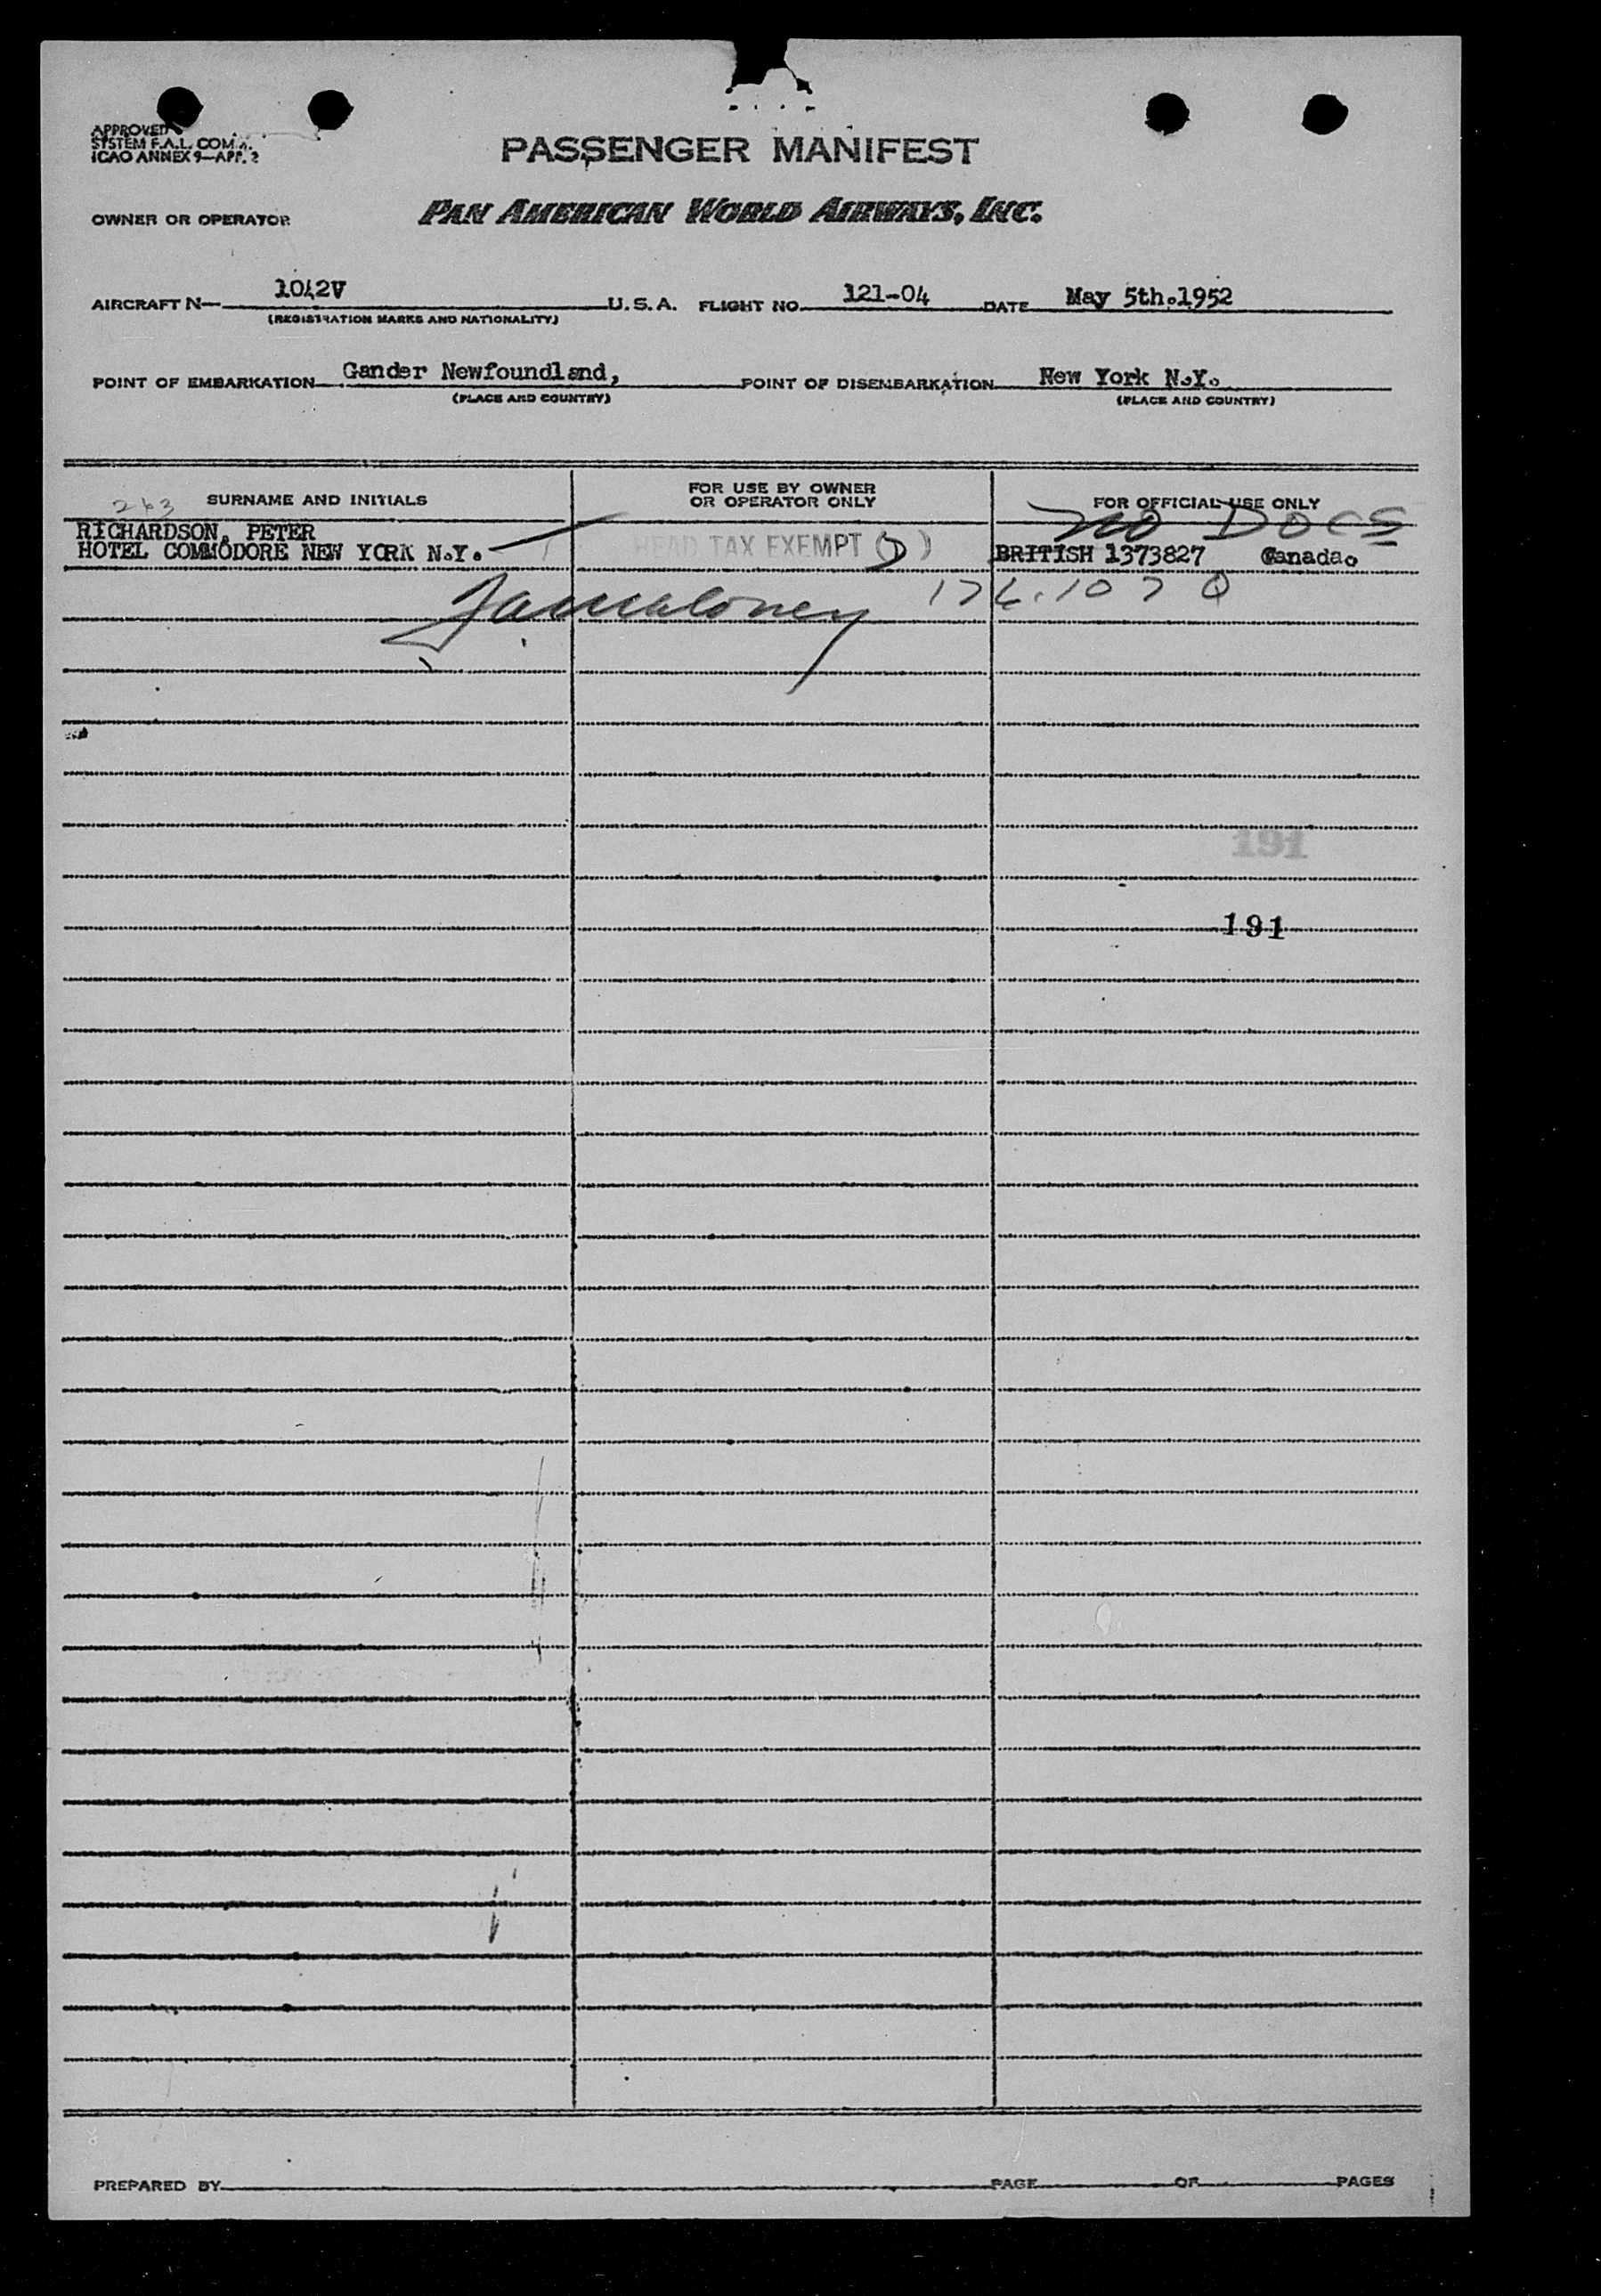 APPROVED
SYSTEM F.A.L. COM.
ICAO ANNEX 9—APP. 2
PASSENGER MANIFEST
OWNER OR OPERATOR PAN AMERICAN WORLD AIRWAYS, INC.
AIRCRAFT N— 1042V U.S.A. FLIGHT NO. 121-04 DATE May 5th.1952
(REGISTRATION MARKS AND NATIONALITY)
POINT OF EMBARKATION Gander Newfoundland, POINT OF DISEMBARKATION New York N.Y.
(PLACE AND COUNTRY) (PLACE AND COUNTRY)
263 SURNAME AND INITIALS
FOR USE BY OWNER
OR OPERATOR ONLY
FOR OFFICIAL USE ONLY
no DOCS
RICHARDSON, PETER
HOTEL COMMODORE NEW YORK N.Y. HEAD TAX EXEMPT (D) BRITISH 1373827 Canada.
191
191
PREPARED BY PAGE OF PAGES